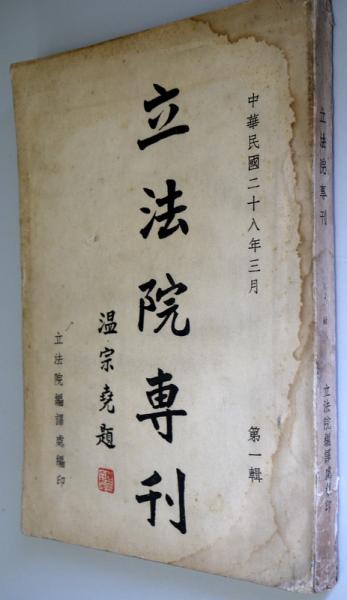 中華民國二十八年三月
第一輯
立法院專刊
温宗堯題
立法院編譯處編印
立法院專刊
立法院編譯處編印